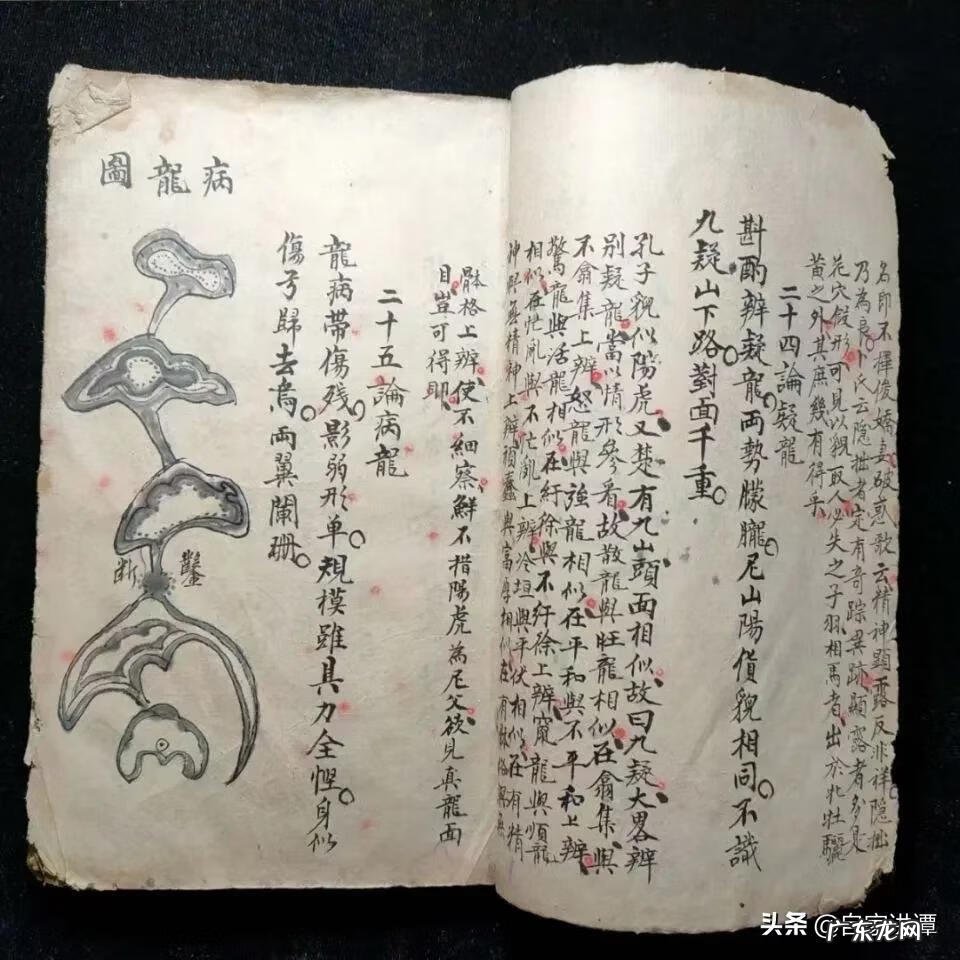 名即不揮俊嬌妻破惑歌云精神顯露反非祥隱拙
乃為良卜氏云隱拙者定有奇踪異跡顯露者多是
花穴假形可見以貌取人必失之子羽相馬者出於牝牡驪
黃之外其庶幾有得乎
二十四論疑龍
斟酌辨疑龍兩勢朦朧尼山陽貨貌相同不識
九疑山下路對面千重
孔子貌似陽虎又楚有九山頭面相似故曰九疑大畧辨
別疑龍當以情形參看故散龍與旺龍相似在翕集與
不翕集上辨怒龍與強龍相似在平和與不平和上辨
驚龍與活龍相似在紆徐與不紆徐上辨竄龍與順龍
相似在忙亂與不忙亂上辨冷垣與平伏相似在有精
神與無精神上辨頑蠢與富厚相似在有
骵格上辨使不細察鮮不措陽虎為尼父欲見真龍面
目豈可得即
二十五論病龍
龍病帶傷殘影弱形单規模雖具力全慳身似
傷弓歸去鳥兩翼闌珊
病龍圖
鑿
断
头条 @客家洪潭
广东龙网